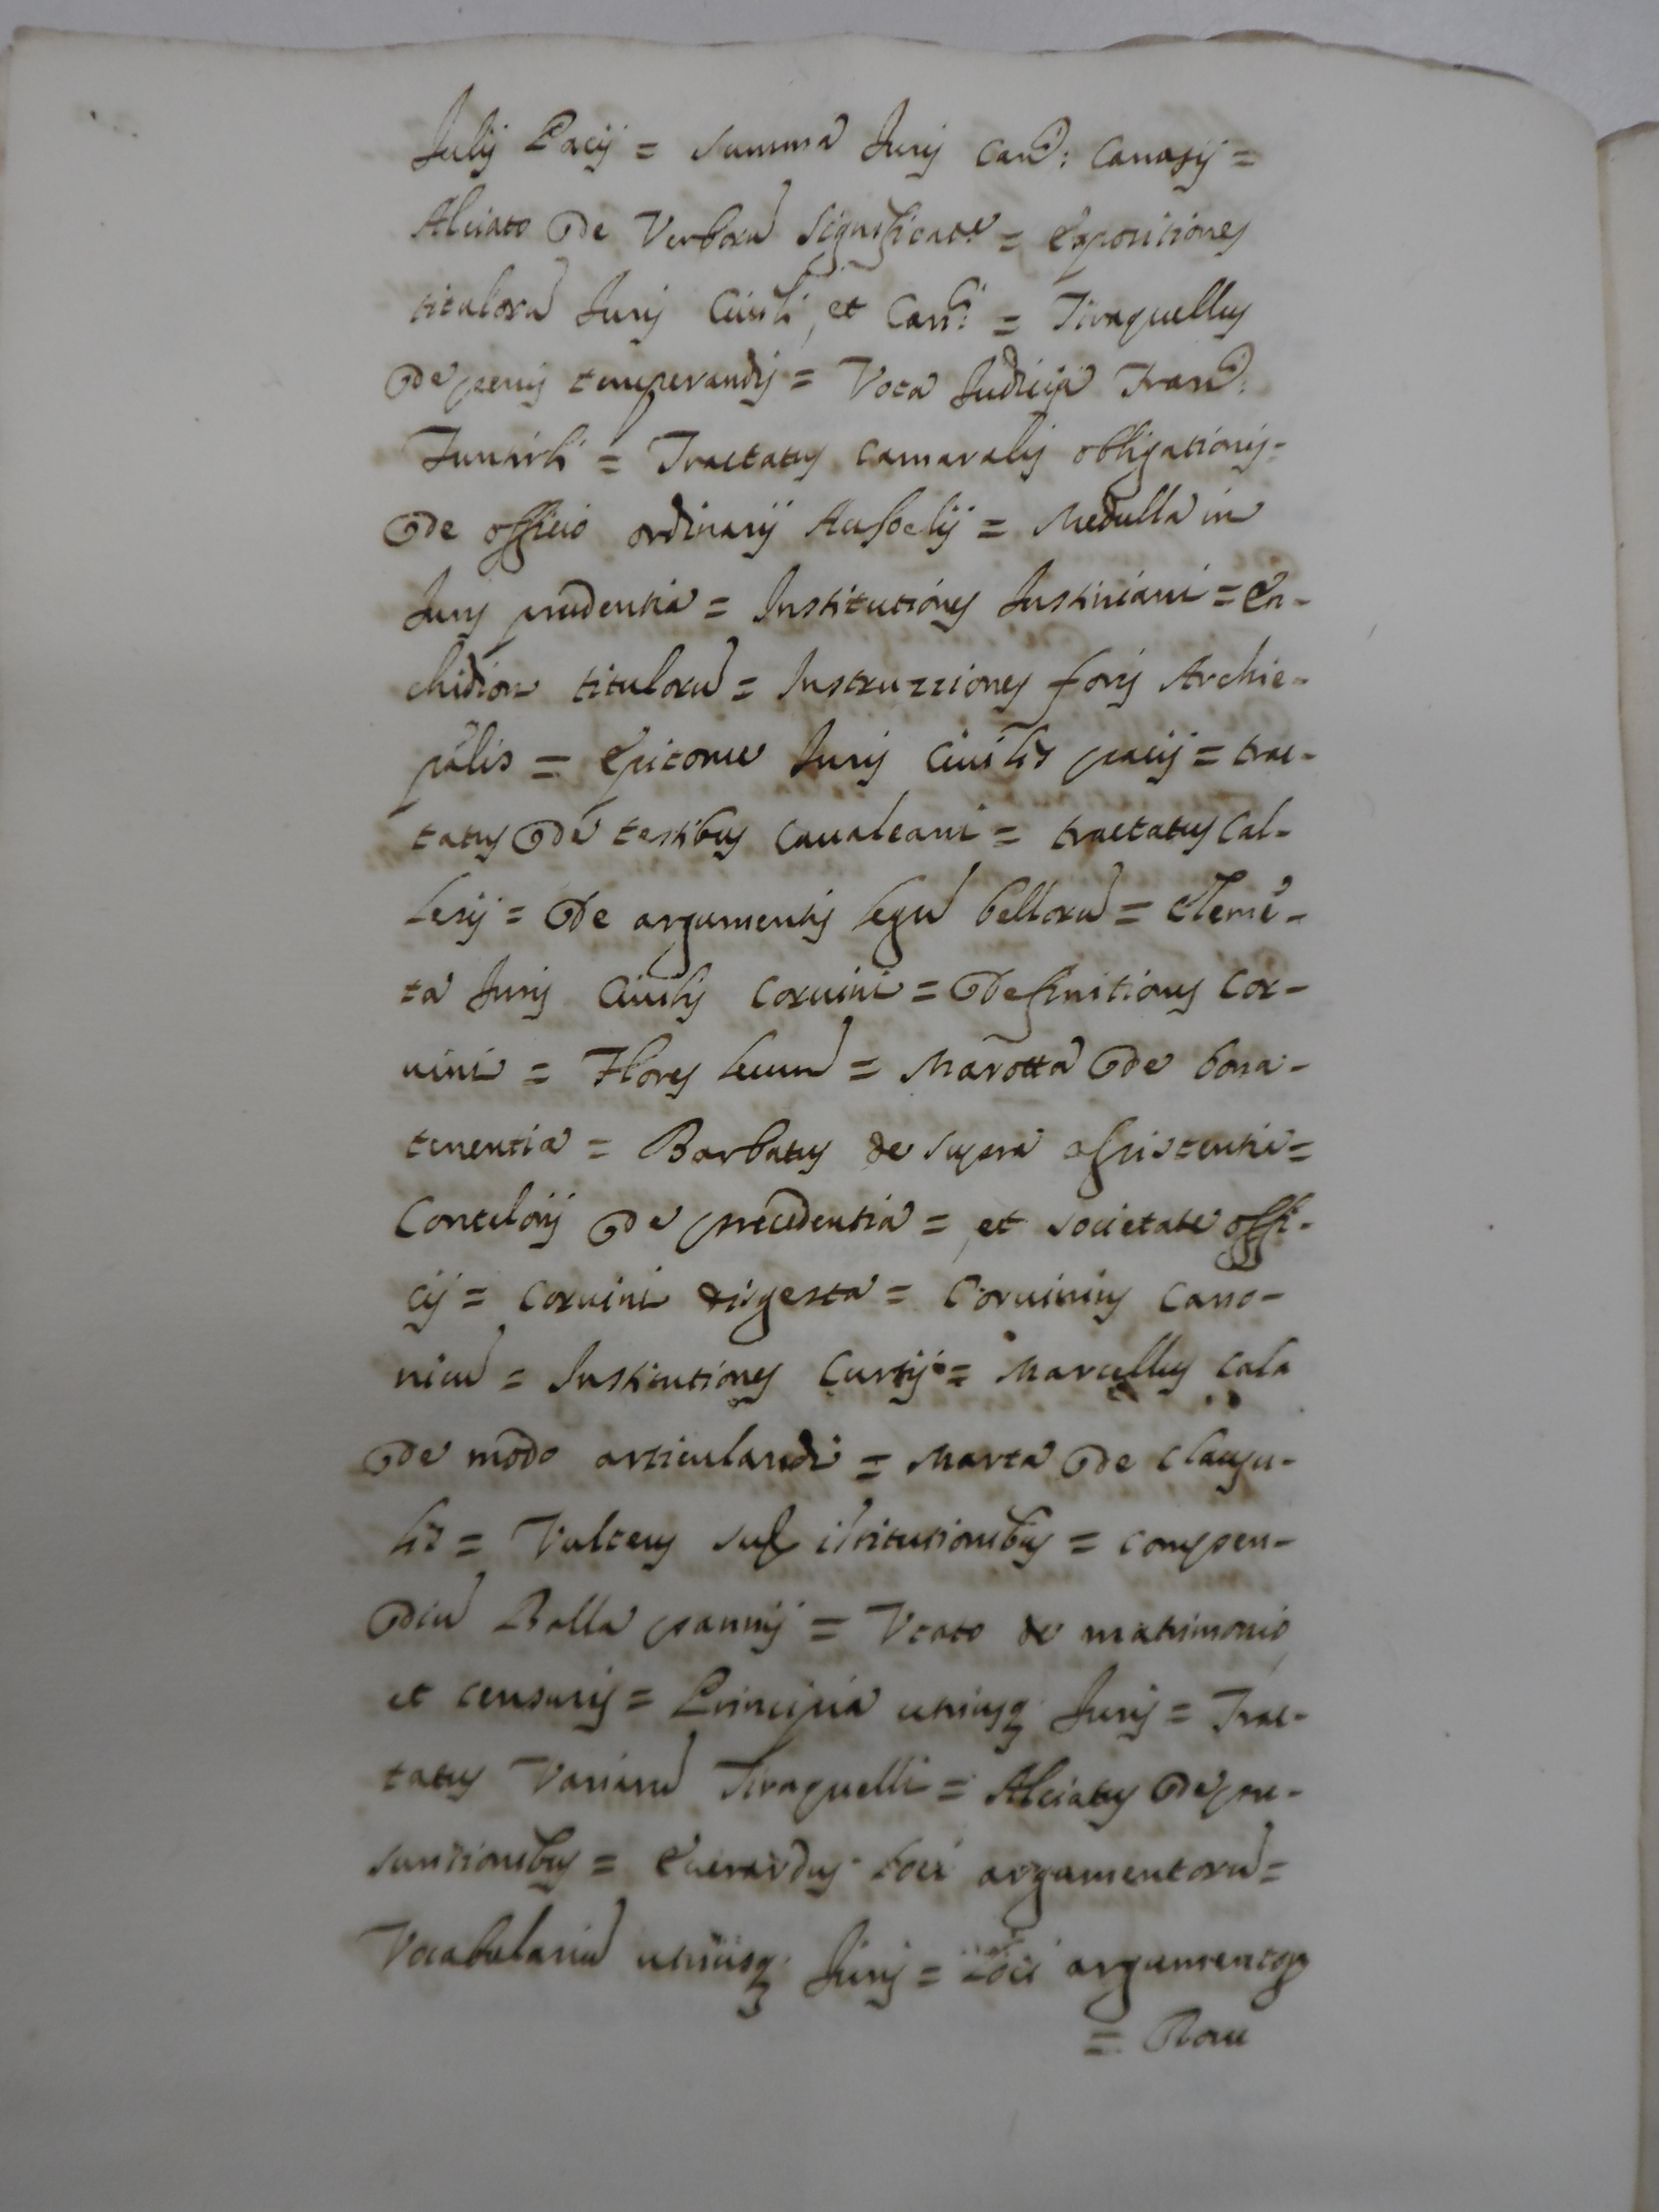 Julij Pacij = summa Juris Can: Canasij =
Alciato De Verborũ significat.e = Expositiones
titulorũ Juris Ciuili, et Can: = Tiraquellus
De penis temperandis = Vota Judicia Fran:
= Tractatus camaralis obligationis =
De officio ordinarij = Medulla in
Juris prudentia = Institutiones Justiniani = En-
chidion titulorũ = Instruzziones foris Archie-
p̃alis = Epitome Juris Ciuilis pacij = trac-
tatus De testibus Caualcani = tractatus Cal-
lesij = De argumentis legũ bellorũ = Elemẽ-
ta Juris Ciuilis Coruini = Definitiones Cor-
uini = Flores = Marotta De bona-
tenentia = Barbatus de supra assistentia =
De precedentia = et societate offi-
cij = Coruini digesta = Coruinius Cano-
nicũ = Institutiones Curtij = Marcellus Cala
De modo articulandi = Marta De clausu-
lis = Vulteus sup istitutionibus = compen-
diũ = Vcato de matrimonio
et censuris = Principia utriusq; Juris = Trac-
tatus Variarũ Tiraquelli = Alciatus De pre-
suntionibus = Euerardus loci argumentorũ =
Vocabulariũ utriusq; Juris = Loci argumentor
=